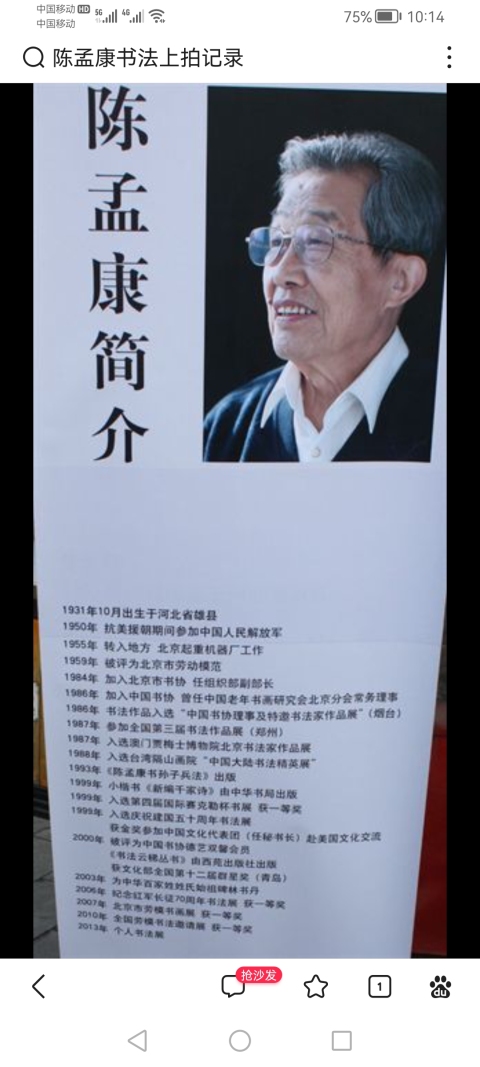 中国移动 HD 5G 4G
中国移动
75% 10:14
陈孟康书法上拍记录
陈孟康简介
1931年10月出生于河北省雄县
1950年 抗美援朝期间参加中国人民解放军
1955年 转入地方 北京起重机器厂工作
1959年 被评为北京市劳动模范
1984年 加入北京市书协 任组织部副部长
1986年 加入中国书协 曾任中国老年书画研究会北京分会常务理事
1986年 书法作品入选“中国书协理事及特邀书法家作品展”（烟台）
1987年 参加全国第三届书法作品展（郑州）
1987年 入选澳门贾梅士博物院北京书法家作品展
1988年 入选台湾隔山画院“中国大陆书法精英展”
1993年《陈孟康书孙子兵法》出版
1999年 小楷书《新编千家诗》由中华书局出版
1999年 入选第四届国际赛克勒杯书展 获一等奖
1999年 入选庆祝建国五十周年书法展
获金奖参加中国文化代表团（任秘书长）赴美国文化交流
2000年 被评为中国书协德艺双馨会员
《书法云梯丛书》由西苑出版社出版
获文化部全国第十二届群星奖（青岛）
2003年 为中华百家姓姓氏始祖碑林书丹
2006年 纪念红军长征70周年书法展 获一等奖
2007年 北京市劳模书画展 获一等奖
2010年 全国劳模书法邀请展 获一等奖
2013年 个人书法展
抢沙发
1
du